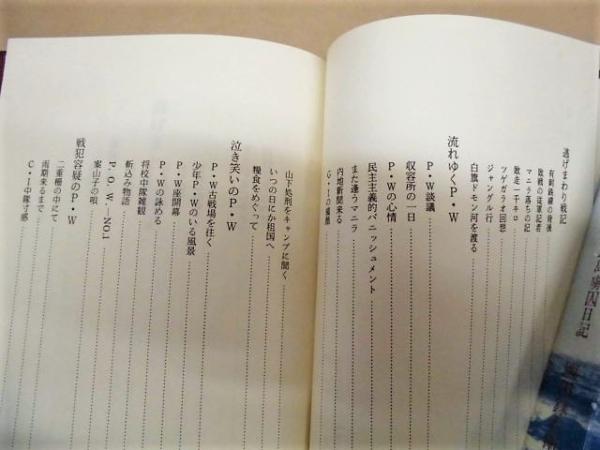 逃げまわり戦記
有刺鉄線の背後
敗戦の従軍記者
マニラ落ちの記
敗走一千キロ
ツゲガラオ回想
ジャングル行
白旗ドモン河を渡る
流れゆくP・W
P・W談議
収容所の一日
P・Wの心情
民主主義的パニッシュメント
また逢うマニラ
内地新聞来る
G・Iの横顔
山下処刑をキャンプに聞く
いつの日にか祖国へ
糧食をめぐって
泣き笑いのP・W
P・W古戦場を往く
少年P・Wのいる風景
P・W座開幕
P・Wの詠める
将校中隊雑観
斬込み物語
P.O.W.NO.1
案山子の唄
戦犯容疑のP・W
二重柵の中にて
雨期来るまで
C・I中隊寸感
虜囚日記